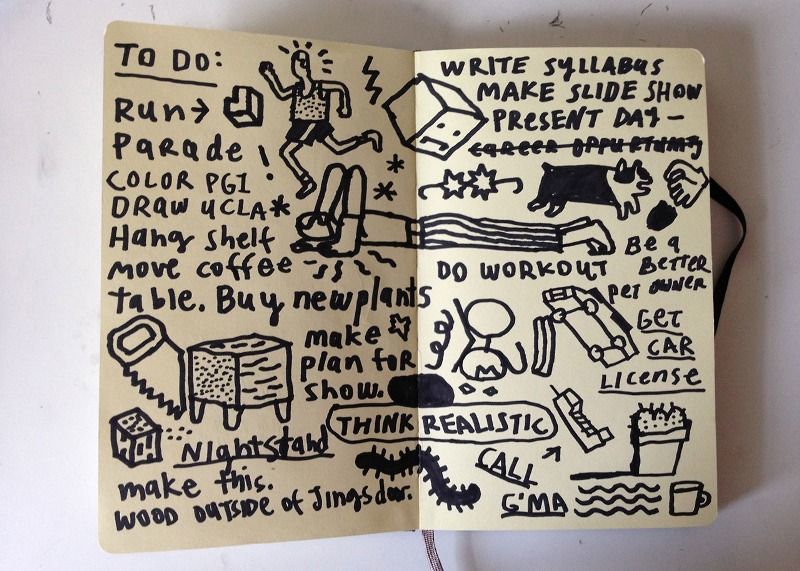 TO DO:
Run→
Parade!
COLOR PG1
DRAW UCLA*
Hang shelf
move coffee
table. Buy new plants
make
plan for
show.
THINK REALISTIC
Nightstand
make this.
WOOD OUTSIDE OF Jings door.
WRITE SYLLABUS
MAKE SLIDE SHOW
PRESENT DAY —
CAREER OPPURTUNITY
Be a
BETTER
PET OWNER
DO WORKOUT
GET
CAR
LICENSE
CALL
G'MA